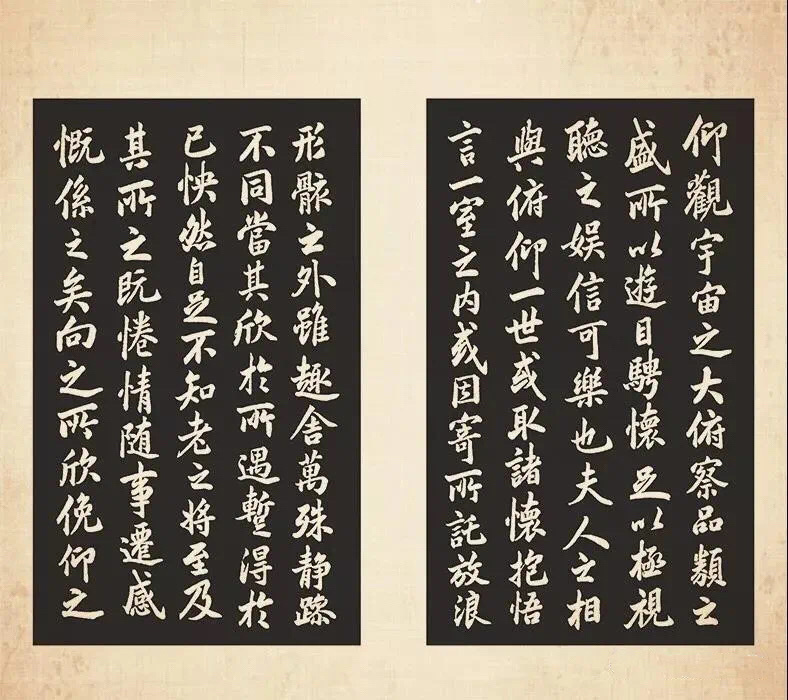 仰觀宇宙之大俯察品類之
盛所以遊目騁懷足以極視
聽之娛信可樂也夫人之相
與俯仰一世或取諸懷抱悟
言一室之内或因寄所託放浪
形骸之外雖趣舍萬殊静躁
不同當其欣於所遇蹔得於
己怏然自足不知老之將至及
其所之既惓情隨事遷感
慨係之矣向之所欣俛仰之